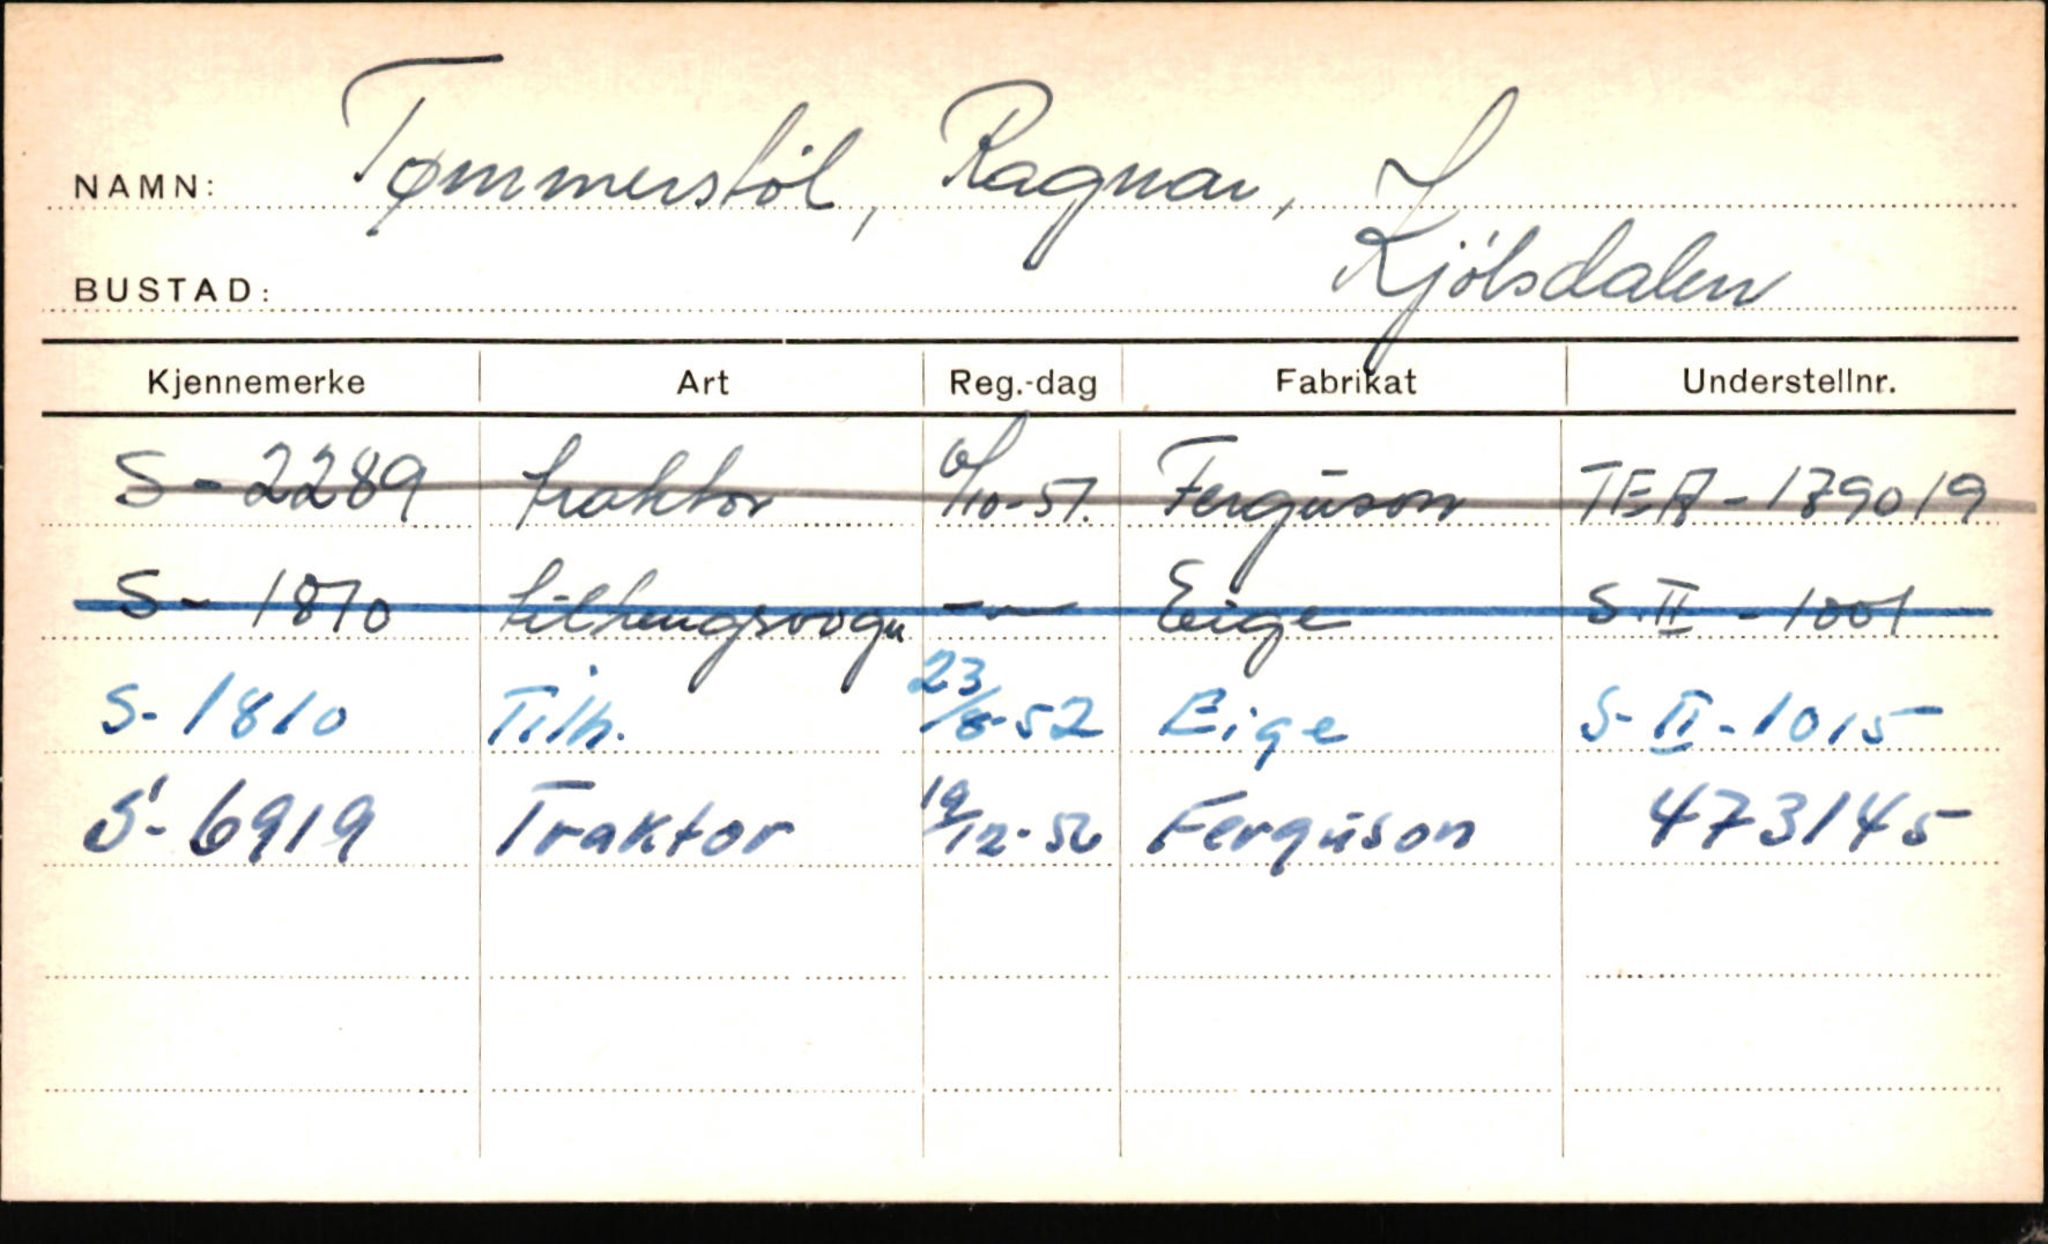 NAMN: Tømmerstöl, Ragnar,
BUSTAD: Kjölsdalen
Kjennemerke Art Reg.-dag Fabrikat Understellnr.
S-2289 traktor 6/10-51. Ferguson TEA-179019
S- 1810 tilhengsvogn -"- Eige S.II-1001
S-1810 Tilh. 23/8-52 Eige S-II-1015
S-6919 Traktor 19/12-56 Ferguson 473145